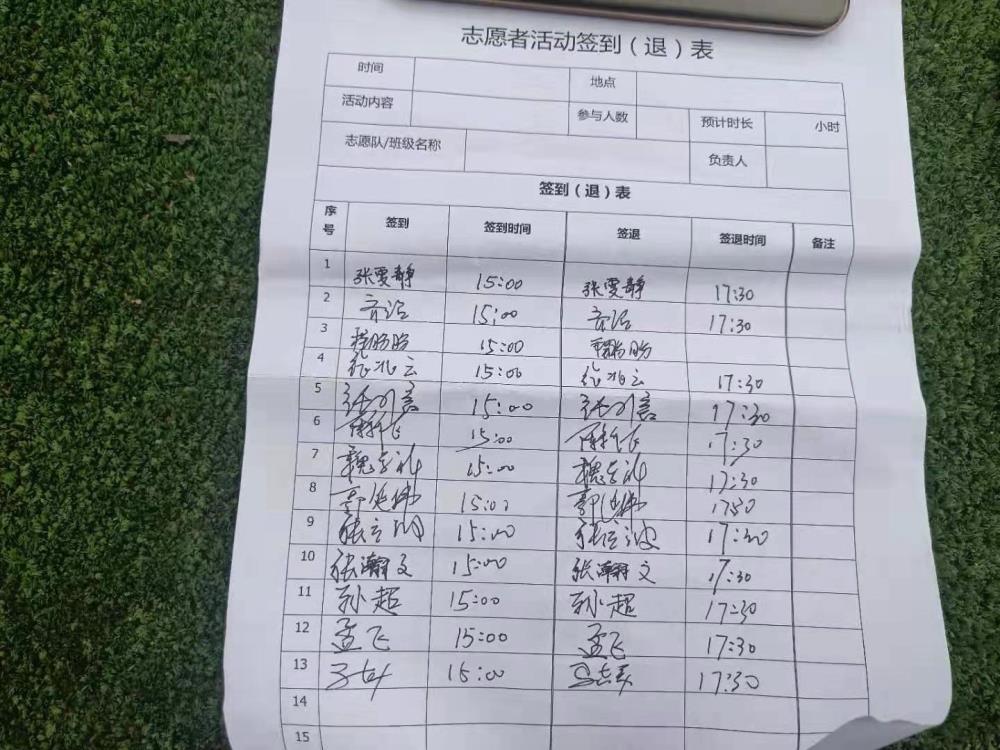 志愿者活动签到（退）表
时间 地点
活动内容 参与人数 预计时长 小时
志愿队/班级名称 负责人
签到（退）表
序号 签到 签到时间 签退 签退时间 备注
1 张雯静 15:00 张雯静 17:30
2 15:00 17:30
3 15:00
4 张兆云 15:00 张兆云 17:30
5 15:00 17:30
6 15:00 17:30
7 15:00 17:30
8 郭延伟 15:00 郭延伟 1730
9 张立波 15:00 张立波 17:30
10 张瀚文 15:00 张瀚文 17:30
11 孙超 15:00 孙超 17:30
12 孟飞 15:00 孟飞 17:30
13 15:00 17:30
14
15